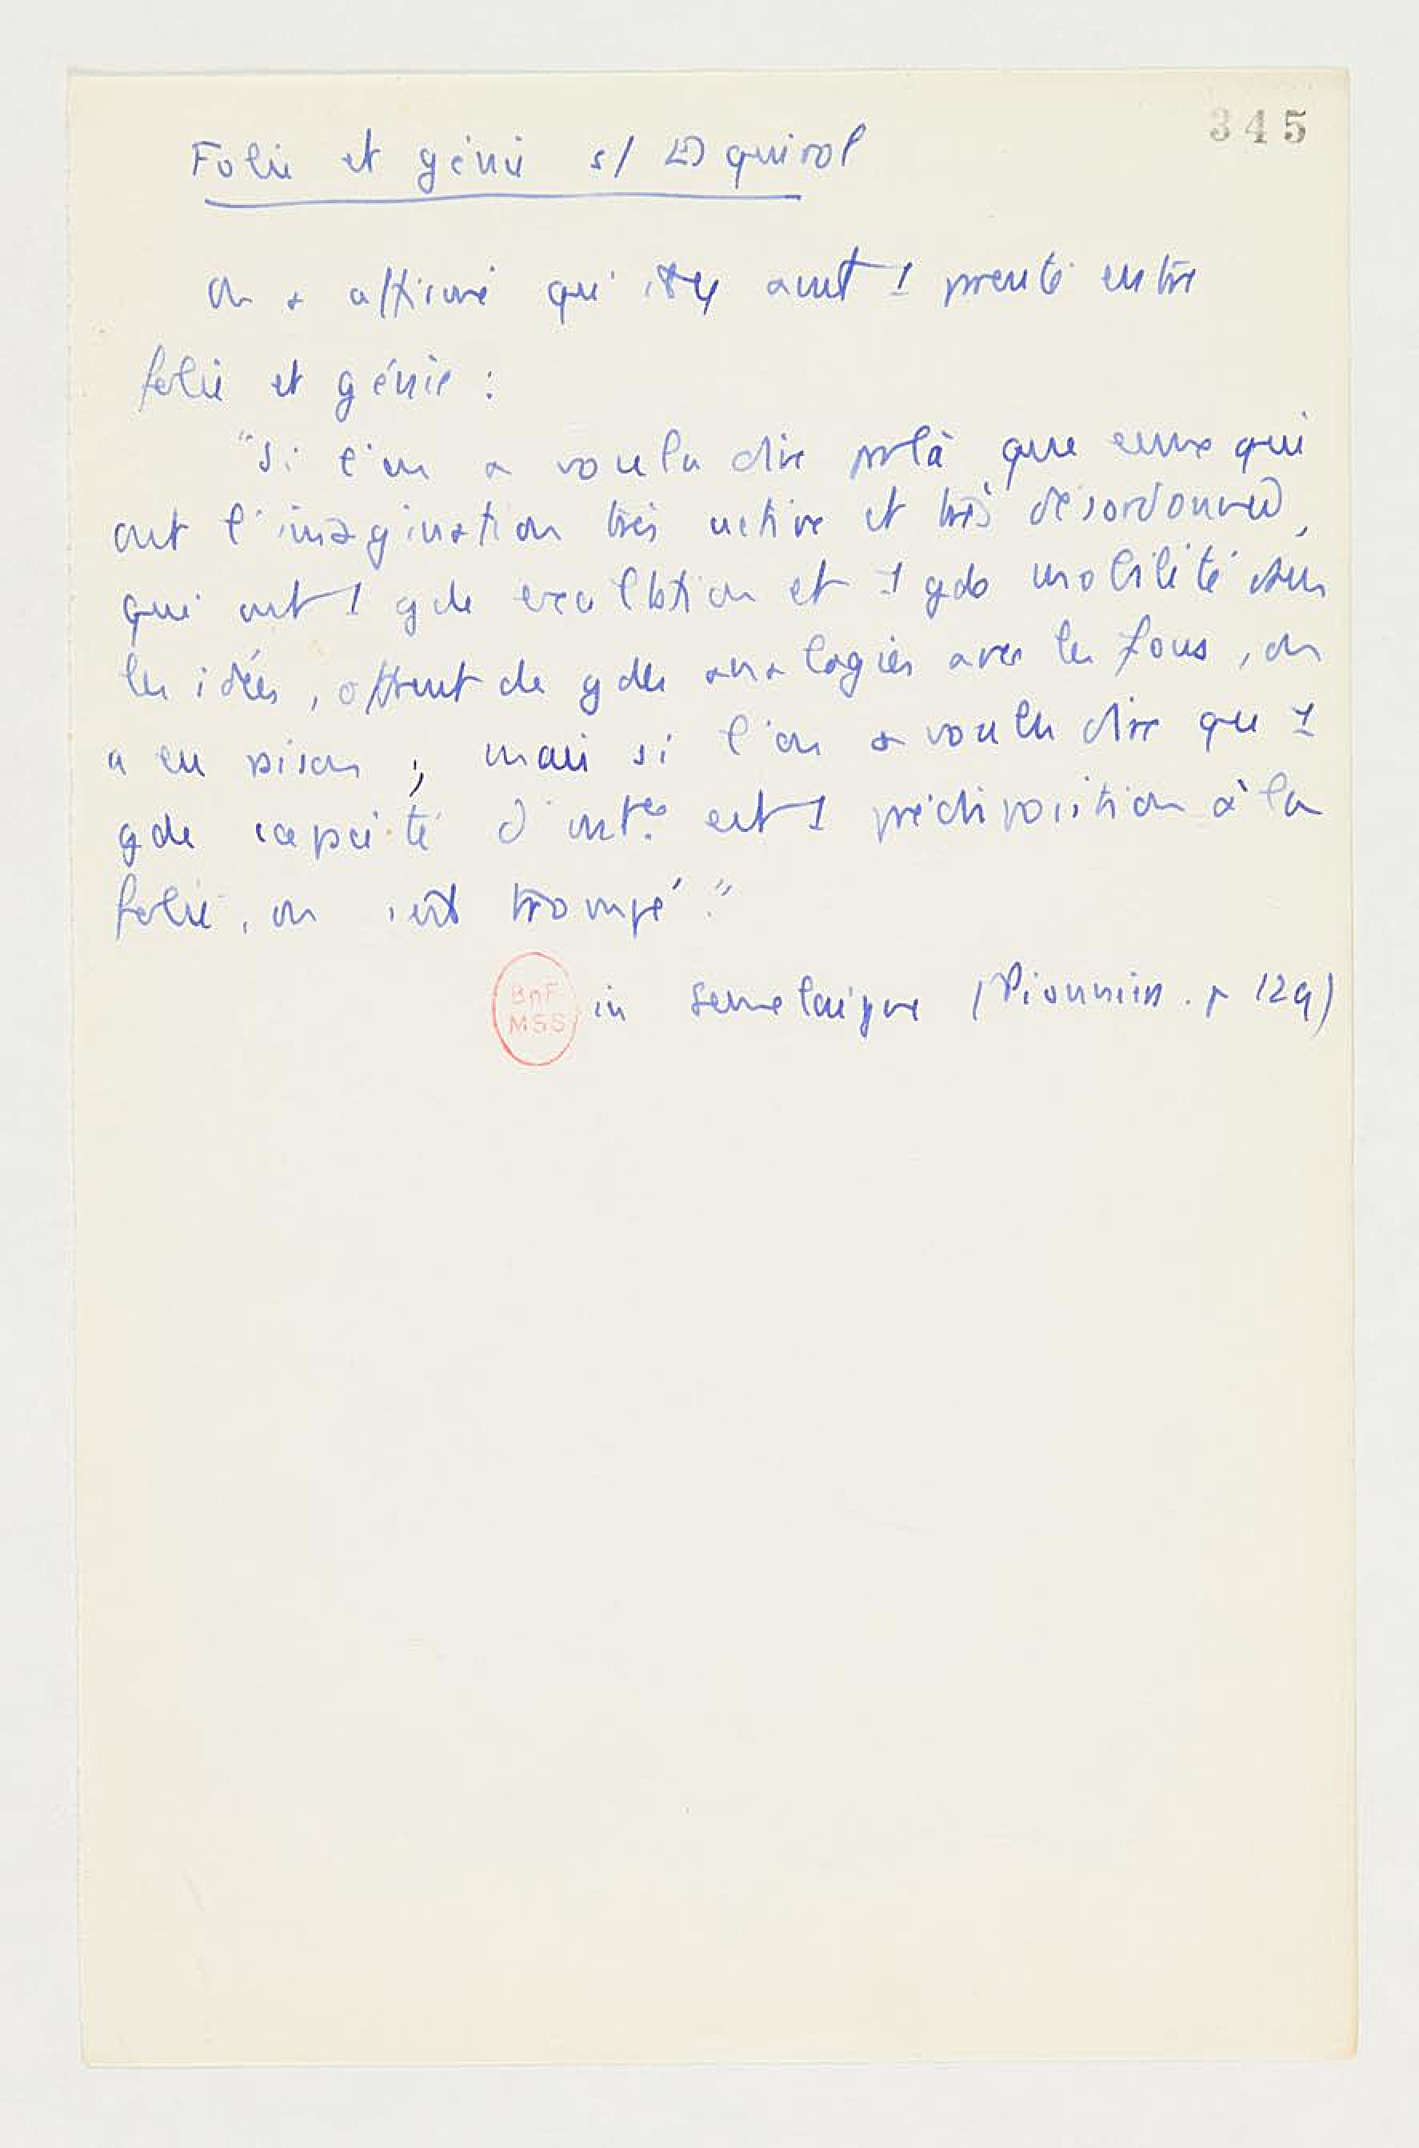 345
Folie et génie s/ Esquirol
On a affirmé qu'il y avait 1 parenté entre
folie et génie :
"Si l'on a voulu dire par là que ceux qui
ont l'imagination très active et très désordonnée,
qui ont 1 gde exaltation et 1 gde mobilité dans
les idées, offrent de gdes analogies avec les fous, on
a eu raison ; mais si l'on a voulu dire que 1
gde capacité d'int.ce est 1 prédisposition à la
folie, on s'est trompé."
BnF
MSS
in Semelaigne (Pionniers. p 129)